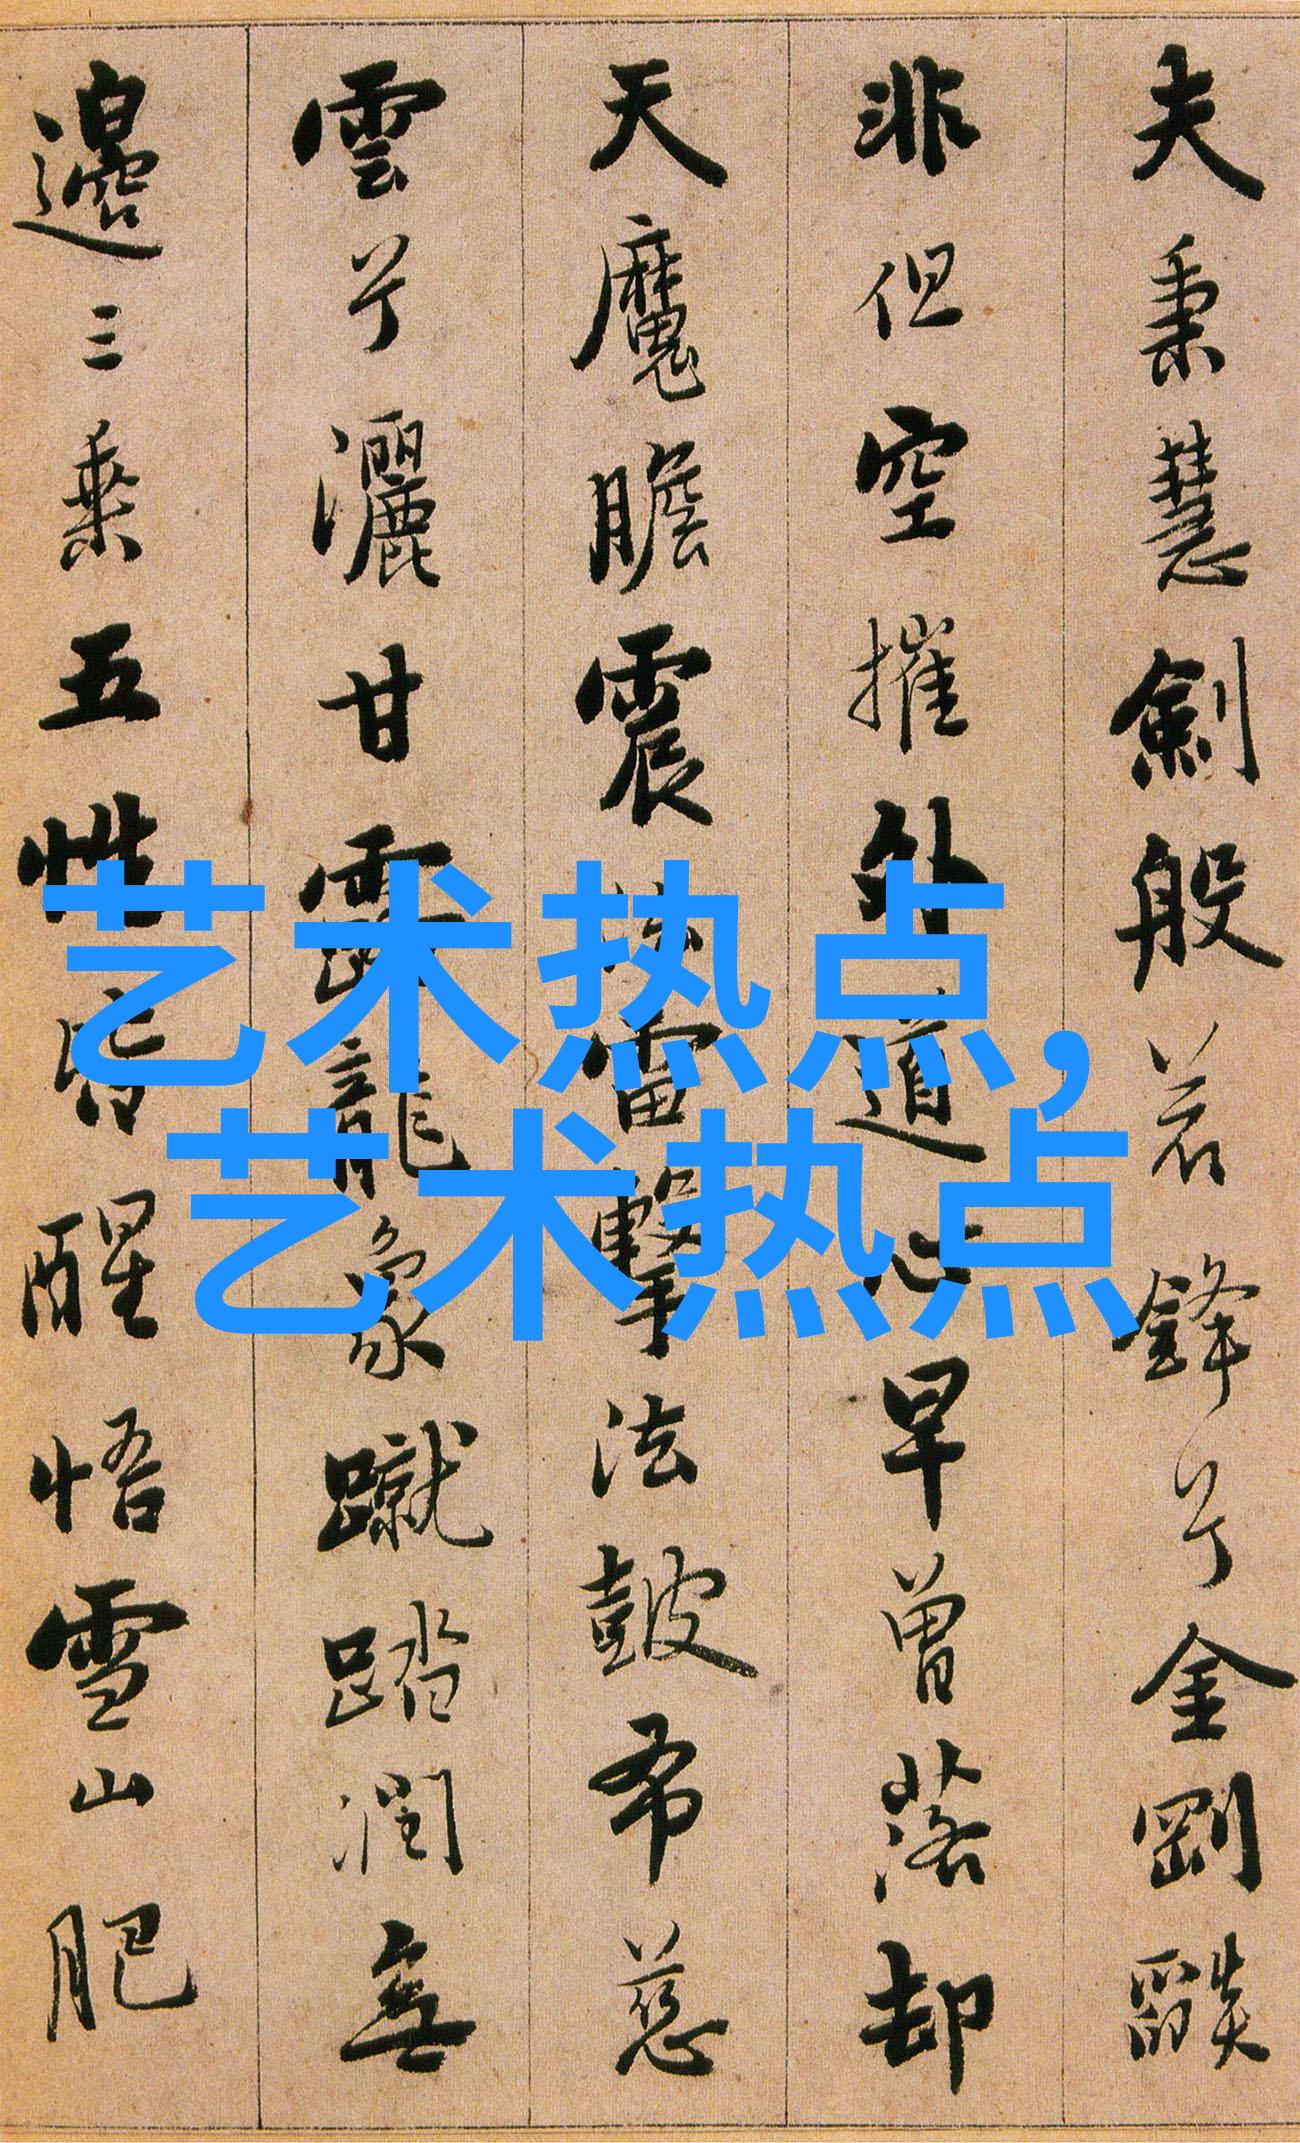 夫秉慧劒般若鋒兮金剛燄
非但空摧外道心早曾落却
天魔膽震法雷擊法皷布慈
雲兮灑甘露龍象蹴踏潤無
邊三乗五性皆醒悟雪山肥
艺术热点,
艺术热点